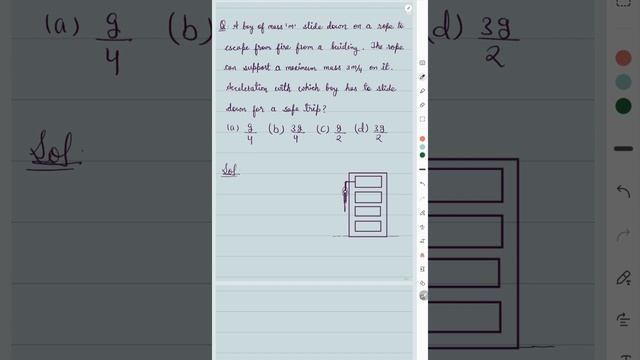 (a) g/4 (b)
Sol.
Q. A boy of mass 'm' slide down on a rope to
escape from fire from a building. The rope
can support a maximum mass 3m/4 on it.
Acceleration with which boy has to slide
down for a safe trip?
(a) g/4 (b) 3g/4 (c) g/2 (d) 3g/2
Sol.
(d) 3g/2